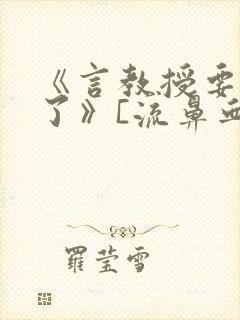 《言教授要
了》[流鼻血
羅莹雪